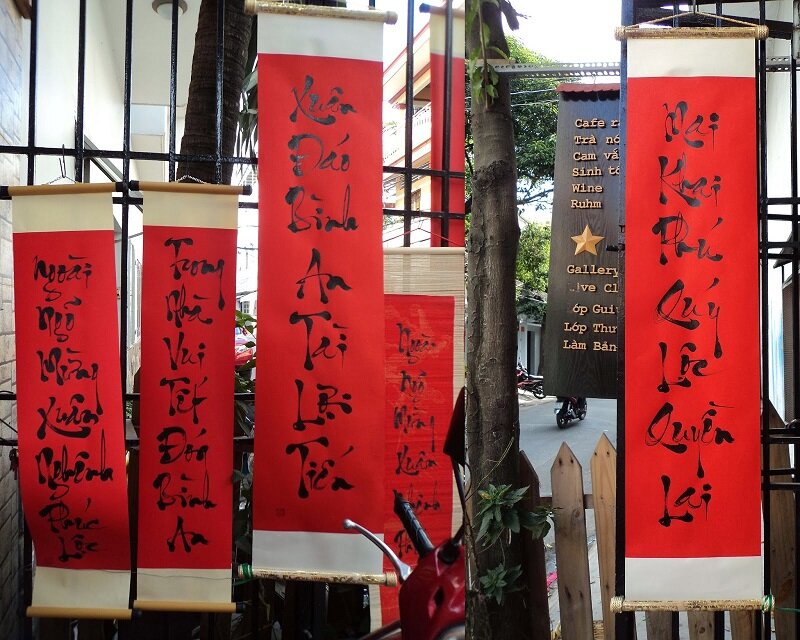 Ngoài
Ngõ
Mừng
Xuân
Nghênh
Phúc
Lộc
Trong
Nhà
Vui
Tết
Đón
Bình
An
Xuân
Đáo
Bình
An
Tài
Lợi
Tiến
Ngoài
Ngõ
Mừng
Xuân
Nghênh
Cafe
Trà
Cam
Sinh tố
Wine
Ruhm
Gallery
Live
Lớp
Lớp
Làm
Mai
Khai
Phú
Quý
Lộc
Quyền
Lai